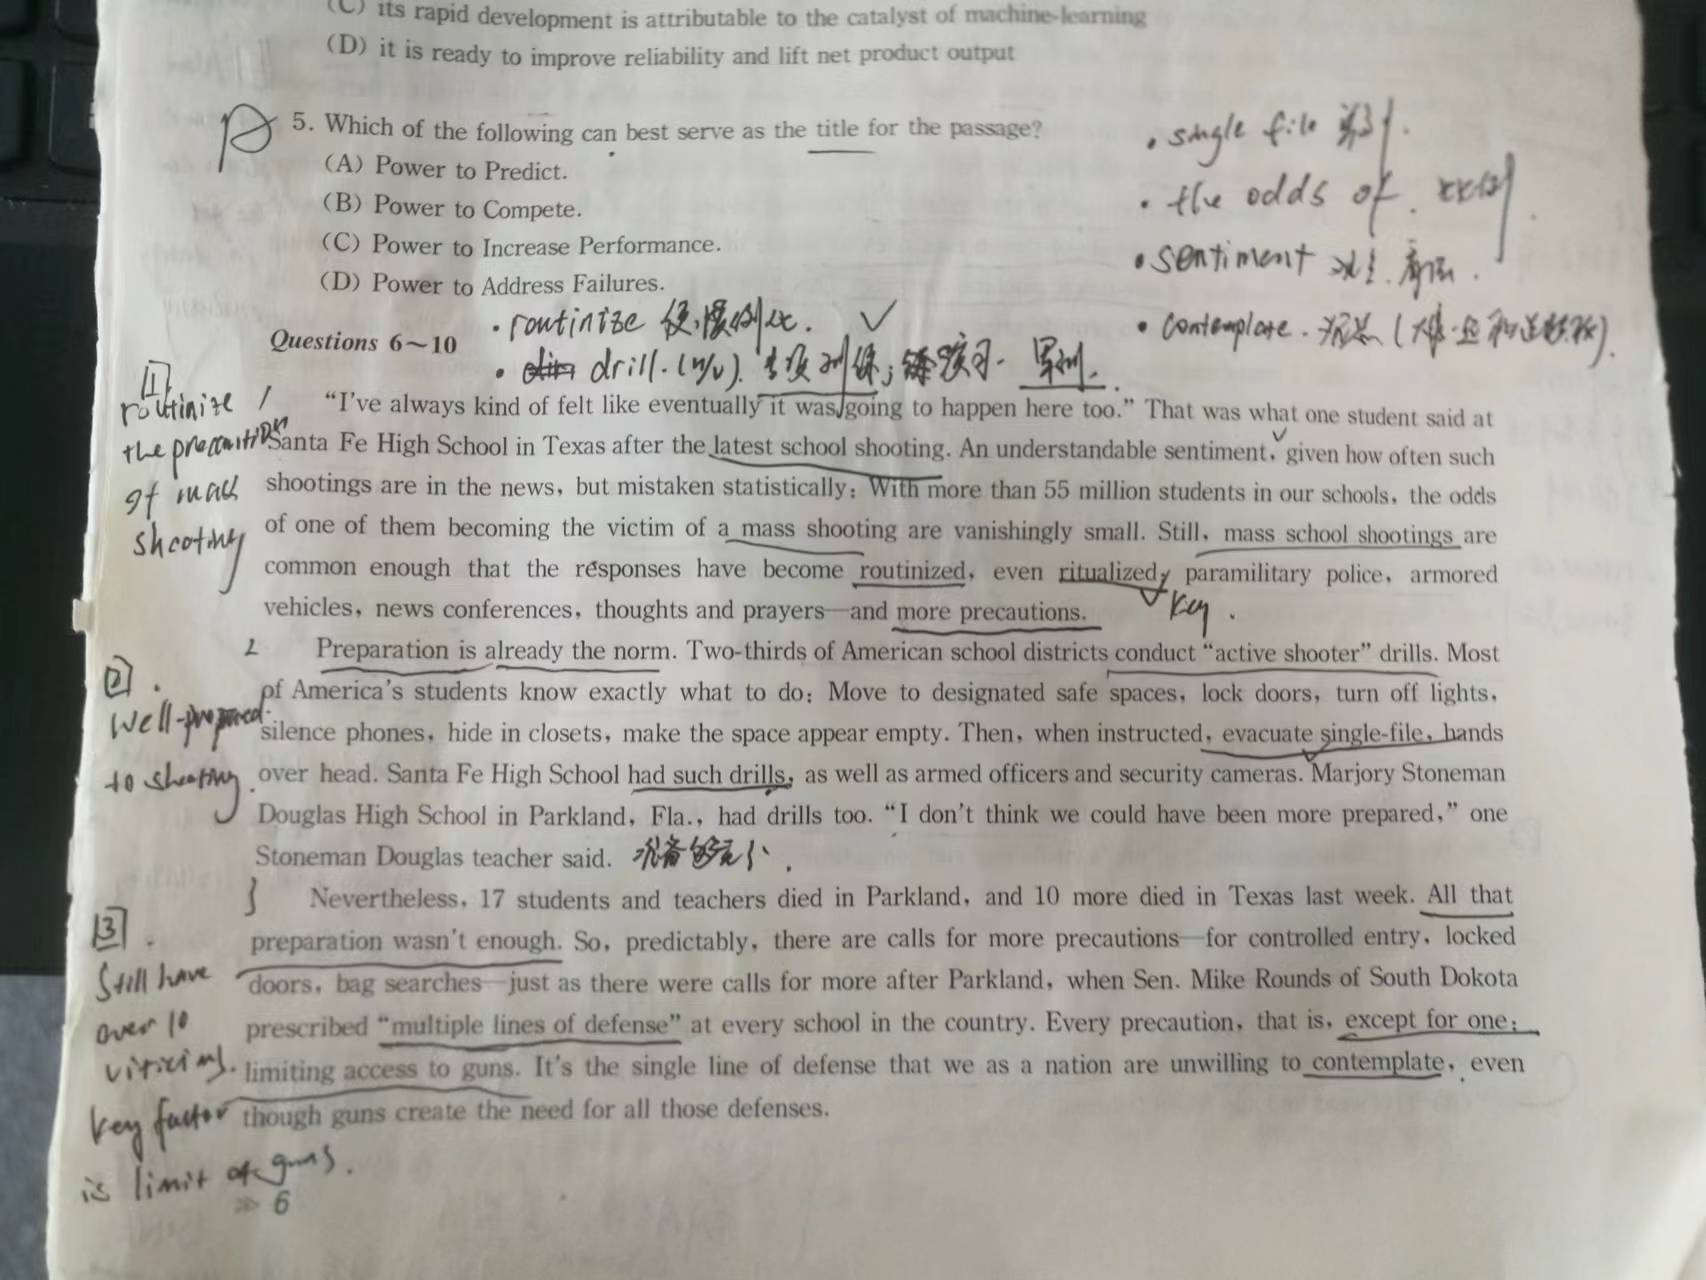 (C) its rapid development is attributable to the catalyst of machine-learning
(D) it is ready to improve reliability and lift net product output
5. Which of the following can best serve as the title for the passage?
(A) Power to Predict.
(B) Power to Compete.
(C) Power to Increase Performance.
(D) Power to Address Failures.
• single file
• the odds of
• sentiment
• contemplate.
• routinize 使惯例化.
• drill. (n/v). 专项训练; 练习. 军训.
Questions 6~10
[1]
routinize
the precaution
of mass
shooting
“I've always kind of felt like eventually it was going to happen here too.” That was what one student said at
Santa Fe High School in Texas after the latest school shooting. An understandable sentiment, given how often such
shootings are in the news, but mistaken statistically: With more than 55 million students in our schools, the odds
of one of them becoming the victim of a mass shooting are vanishingly small. Still, mass school shootings are
common enough that the responses have become routinized, even ritualized: paramilitary police, armored
vehicles, news conferences, thoughts and prayers—and more precautions.
key.
[2].
Well-prepared
to shooting.
2
Preparation is already the norm. Two-thirds of American school districts conduct “active shooter” drills. Most
of America's students know exactly what to do: Move to designated safe spaces, lock doors, turn off lights,
silence phones, hide in closets, make the space appear empty. Then, when instructed, evacuate single-file, hands
over head. Santa Fe High School had such drills, as well as armed officers and security cameras. Marjory Stoneman
Douglas High School in Parkland, Fla., had drills too. “I don't think we could have been more prepared,” one
Stoneman Douglas teacher said. 准备够充分.
[3].
Still have
over 10
key factor
is limit of guns.
3
Nevertheless, 17 students and teachers died in Parkland, and 10 more died in Texas last week. All that
preparation wasn't enough. So, predictably, there are calls for more precautions—for controlled entry, locked
doors, bag searches—just as there were calls for more after Parkland, when Sen. Mike Rounds of South Dokota
prescribed “multiple lines of defense” at every school in the country. Every precaution, that is, except for one:
limiting access to guns. It's the single line of defense that we as a nation are unwilling to contemplate, even
though guns create the need for all those defenses.
6